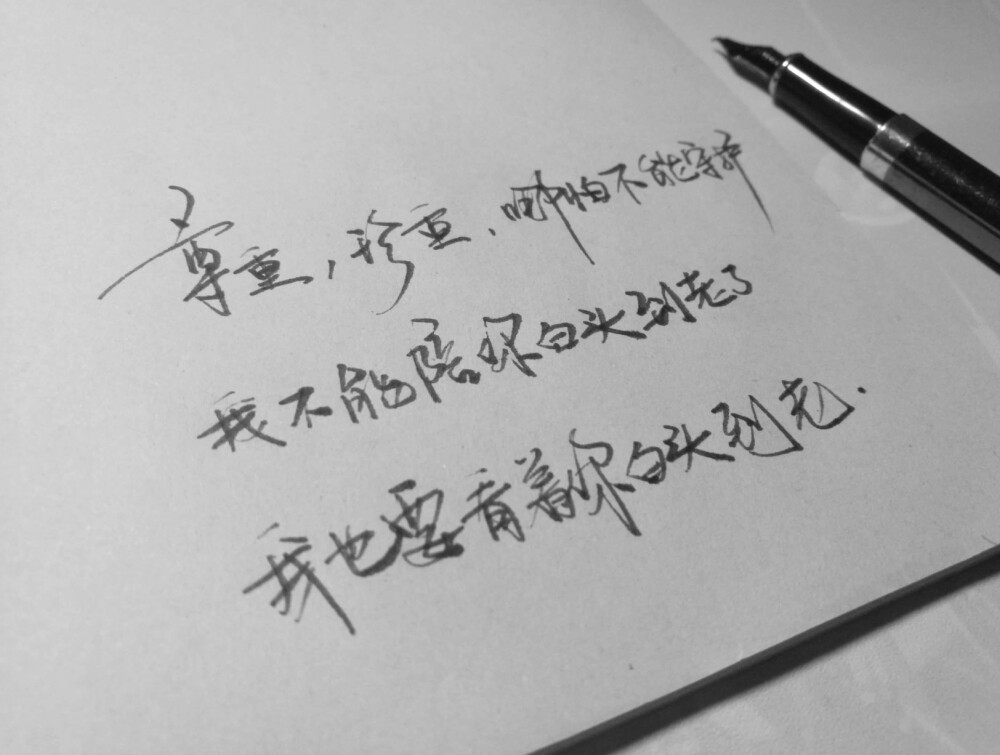 尊重,珍重、哪怕不能守护
我不能陪你白头到老了
我也要看着你白头到老.